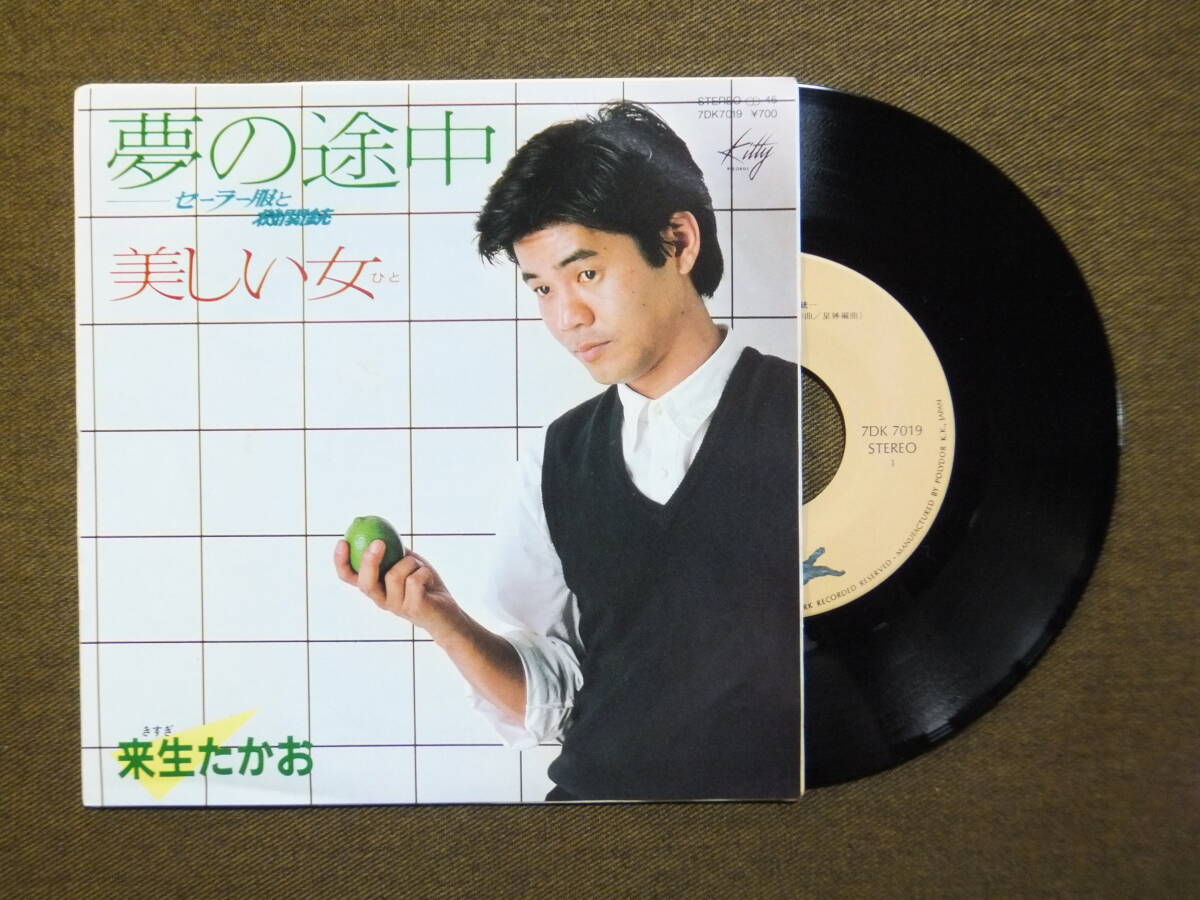 夢の途中
セーラー服と
機関銃
美しい女
ひと
STEREO 45
7DK7019 ¥700
Kitty
RECORDS
きすぎ
来生たかお
7DK 7019
STEREO
1
RK RECORDED RESERVED - MANUFACTURED BY POLYDOR K.K., JAPAN